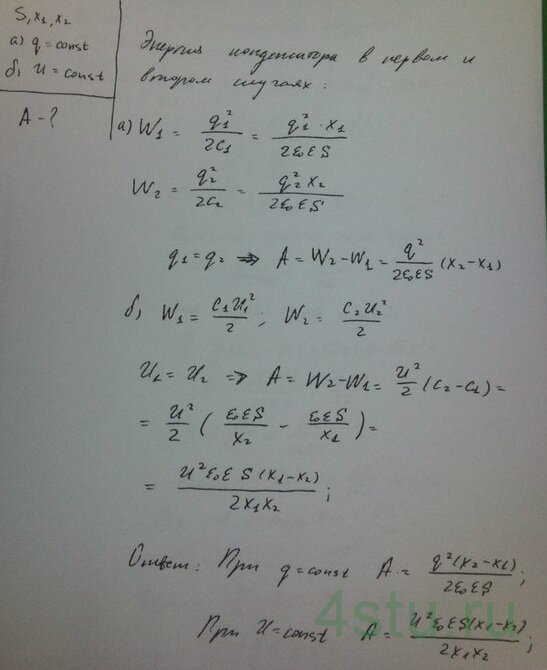 S, x₁, x₂
а) q = const
б) U = const
A - ?
Энергия конденсатора в первом и
втором случаях:
а) W₁ = q₁²/2C₁ = q₁²·x₁/2ε₀εS
W₂ = q₂²/2C₂ = q₂²x₂/2ε₀εS
q₁ = q₂ ⇒ A = W₂ - W₁ = q²/2ε₀εS (x₂ - x₁)
б) W₁ = C₁U₁²/2 ; W₂ = C₂U₂²/2
U₁ = U₂ ⇒ A = W₂ - W₁ = U²/2 (C₂ - C₁) =
= U²/2 ( ε₀εS/x₂ - ε₀εS/x₁ ) =
= U²ε₀εS(x₁ - x₂)/2x₁x₂ ;
Ответ: При q = const A = q²(x₂ - x₁)/2ε₀εS ;
При U = const A = U²ε₀εS(x₁ - x₂)/2x₁x₂ ;
4stu.ru